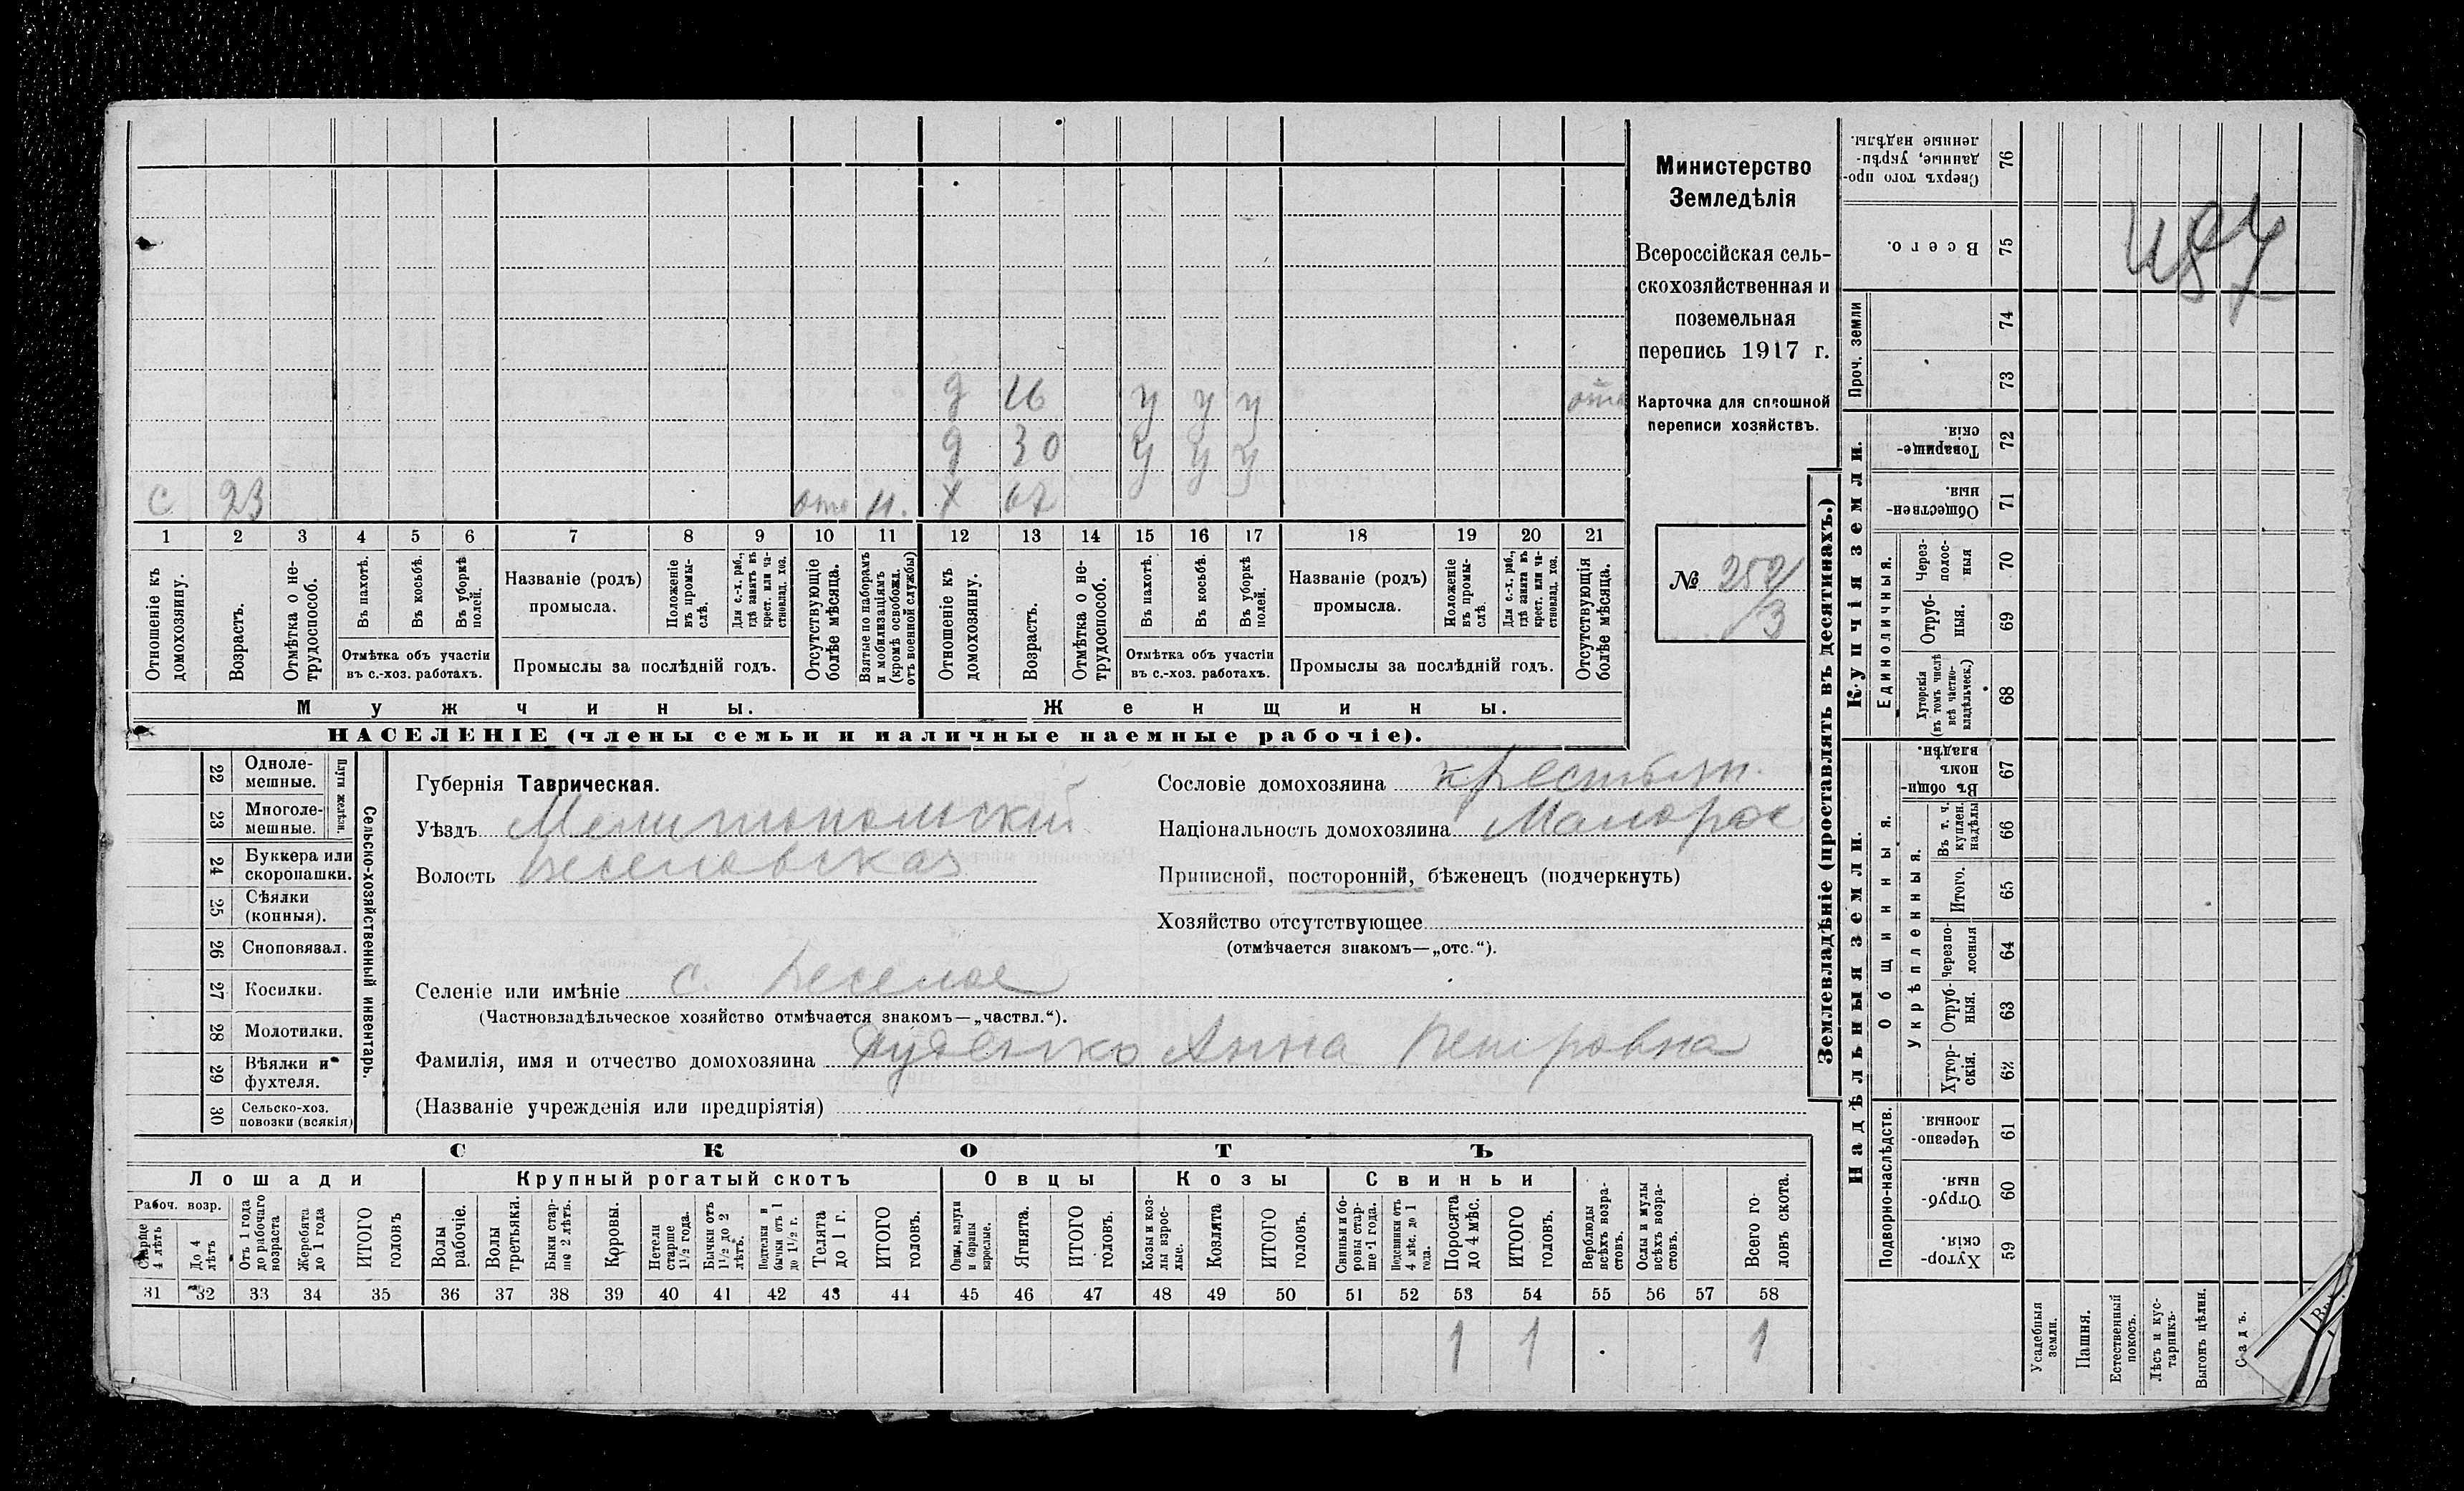 Министерство
Земледѣлія
Всероссійская сель-
скохозяйственная и
поземельная
перепись 1917 г.
Карточка для сплошной
переписи хозяйствъ.
№ 250/3
д 16 у у у отс
д 30 у у у
с 23 отс Н. х 67
1 2 3 4 5 6 7 8 9 10 11 12 13 14 15 16 17 18 19 20 21
Отношеніе къ домохозяину.
Возрастъ.
Отмѣтка о не-трудоспособ.
Въ пахотѣ.
Въ косьбѣ.
Въ уборкѣ полей.
Отмѣтка объ участіи
въ с.-хоз. работахъ.
Названіе (родъ)
промысла.
Положеніе въ промы-слѣ.
Для с.-х. раб., гдѣ занятъ въ крест. или ча-стновлад. хоз.
Промыслы за послѣдній годъ.
Отсутствующіе болѣе мѣсяца.
Взятые по наборамъ и мобилизаціямъ (кромѣ освобожд. отъ военной службы)
Отношеніе къ домохозяину.
Возрастъ.
Отмѣтка о не-трудоспособ.
Въ пахотѣ.
Въ косьбѣ.
Въ уборкѣ полей.
Отмѣтка объ участіи
въ с.-хоз. работахъ.
Названіе (родъ)
промысла.
Положеніе въ промы-слѣ.
Для с.-х. раб., гдѣ занята въ крест. или ча-стновлад. хоз.
Промыслы за послѣдній годъ.
Отсутствующія болѣе мѣсяца.
Мужчины.
Женщины.
НАСЕЛЕНІЕ (члены семьи и наличные наемные рабочіе).
Сельско-хозяйственный инвентарь.
Плуги желѣзн.
22 Одноле-мешные.
23 Многоле-мешные.
24 Буккера или скоропашки.
25 Сѣялки (конныя).
26 Сноповязал.
27 Косилки.
28 Молотилки.
29 Вѣялки и фухтеля.
30 Сельско-хоз. повозки (всякія)
Губернія Таврическая.
Уѣздъ Мелитопольскій
Волость Веселовская
Сословіе домохозяина крестьян.
Національность домохозяина Малорос
Приписной, посторонній, бѣженецъ (подчеркнуть)
Хозяйство отсутствующее
(отмѣчается знакомъ—„отс.“).
Селеніе или имѣніе с. Веселое
(Частновладѣльческое хозяйство отмѣчается знакомъ—„частвл.“).
Фамилія, имя и отчество домохозяина Анна Петровна
(Названіе учрежденія или предпріятія)
СКОТЪ
Лошади
Рабоч. возр.
Старше 4 лѣтъ
До 4 лѣтъ
Отъ 1 года до рабочаго возраста
Жеребята до 1 года
ИТОГО головъ
Крупный рогатый скотъ
Волы рабочіе.
Волы третьяки.
Быки стар-ше 2 лѣтъ.
Коровы.
Нетели старше 1½ года.
Бычки отъ 1½ до 2 лѣтъ.
Подтелки и бычки отъ 1 до 1½ г.
Телята до 1 г.
ИТОГО головъ.
Овцы
Овцы, валухи и бараны взрослые.
Ягнята.
ИТОГО головъ.
Козы
Козы и коз-лы взрос-лые.
Козлята
ИТОГО головъ.
Свиньи
Свиньи и бо-ровы стар-ше 1 года.
Подсвинки отъ 4 мѣс. до 1 года.
Поросята до 4 мѣс.
ИТОГО головъ.
Верблюды всѣхъ возра-стовъ.
Ослы и мулы всѣхъ возра-стовъ.
Всего го-ловъ скота.
31 32 33 34 35 36 37 38 39 40 41 42 43 44 45 46 47 48 49 50 51 52 53 54 55 56 57 58
1 1 1
Землевладѣніе (проставлять въ десятинахъ.)
Купчія земли.
Проч. земли
Надѣльныя земли.
Общинныя.
Укрѣпленныя.
Единоличныя.
Подворно-наслѣдств.
Сверхъ того про-данные, укрѣп-ленные надѣлы. 76
Всего. 75
74
73
Товарище-скія. 72
Обществен-ныя. 71
Через-полос-ныя 70
Отруб-ныя. 69
Хуторскія (въ томъ числѣ всѣ частно-владѣльческ.) 68
Въ общин-номъ владѣн. 67
Въ т. ч. куплен. надѣлы 66
Итого. 65
Черезпо-лосныя 64
Отруб-ныя. 63
Хутор-скія. 62
Черезпо-лосныя 61
Отруб-ныя. 60
Хутор-скія. 59
Усадебныя земли.
Пашня.
Естественный покосъ.
Лѣсъ и кус-тарникъ.
Выгонъ цѣлин.
Садъ.